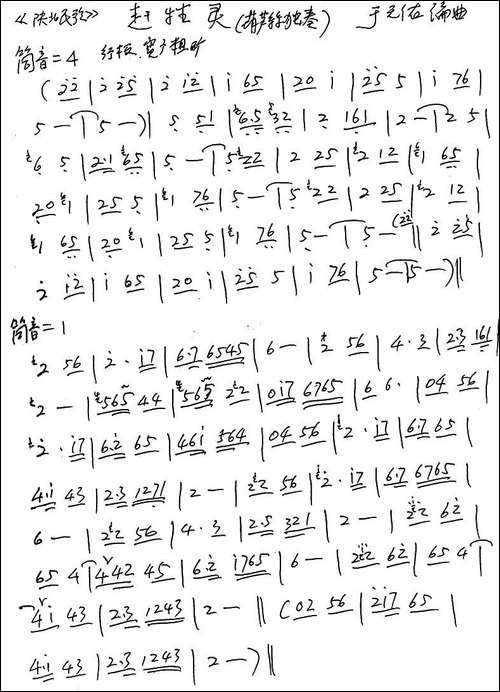 《陕北民歌》 赶牲灵 独奏) 编曲
筒音=4 行板 宽广粗旷
( 22 | 2 25 | 2 12 | 1 65 | 20 1 | 25 5 | 1 76 |
5 – | 5 –) | 5 51 | 6.5 32 | 2 161 | 2 – | 2 5 |
6 5 | 2.1 65 | 5 – | 5 22 | 2 25 | 2 12 | 1 65 |
20 1 | 25 5 | 1 76 | 5 – | 5 22 | 2 25 | 2 12 |
1 65 | 20 1 | 25 5 | 1 76 | 5 – | 5 – (22 ‖ 2 25 |
2 12 | 1 65 | 20 1 | 25 5 | 1 76 | 5 – | 5 –) ‖
筒音=1
2 56 | 2 · 17 | 6.7 6545 | 6 – | 2 56 | 4 · 3 | 2.3 161 |
2 – | 565 44 | 565 22 | 017 6765 | 6 6 · | 04 56 |
2 · 17 | 6.2 65 | 461 564 | 04 56 | 2 · 17 | 6.7 65 |
4.1 43 | 2.3 1271 | 2 – | 22 56 | 2 · 17 | 6.7 6765 |
6 – | 22 56 | 4 · 3 | 2.5 321 | 2 – | 22 62 |
65 4 | 442 45 | 6.2 1765 | 6 – | 22 62 | 65 4 |
41 43 | 2.3 1243 | 2 – ‖ (02 56 | 217 65 |
4.1 43 | 2.3 1243 | 2 –) ‖